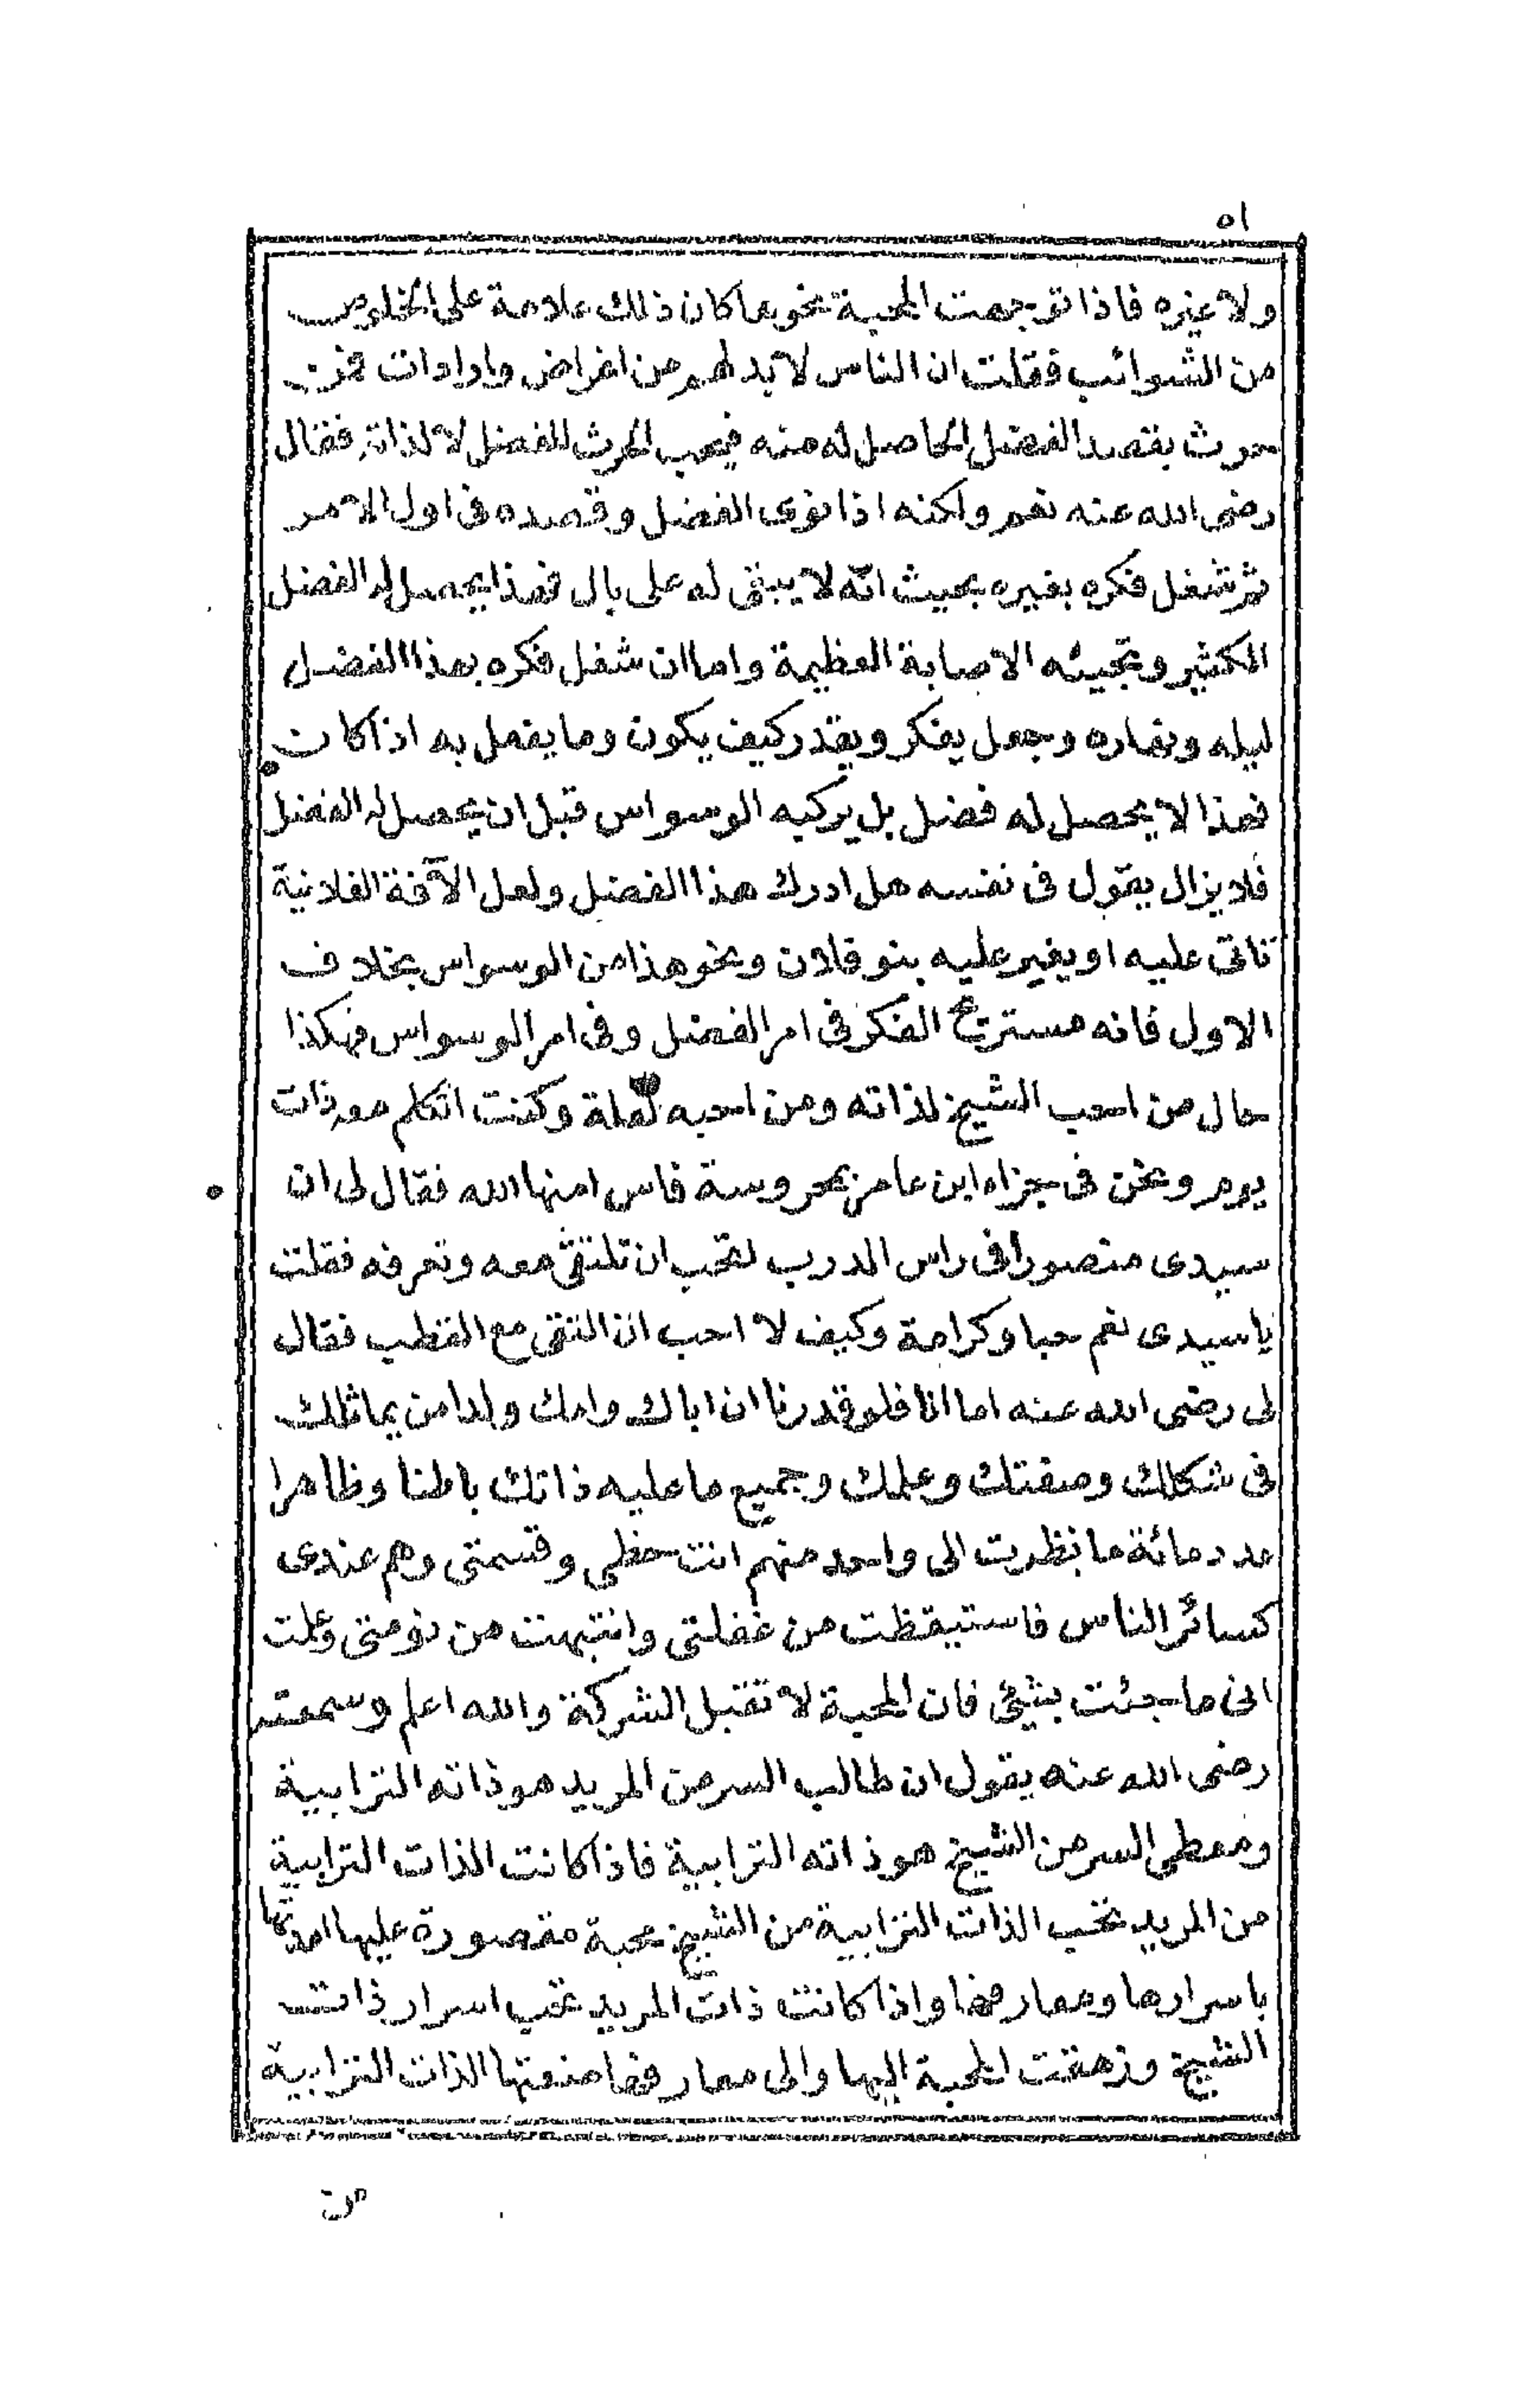 ٥١
ولا غيره فاذا توجهت المحبة نحوها كان ذلك علامة على الخلوص
من الشوائب فقلت ان الناس لا بد لهم من اغراض وارادات فمن
حرث بقصد الفضل الحاصل له منه فيحب الحرث للفضل لا لذاته فقال
رضى الله عنه نعم ولكنه اذا نوى الفضل وقصده فى اول الامر
ثم شغل فكره بغيره بحيث انه لا يبقى له على بال فهذا يحصل له الفضل
الكثير وتجيئه الاصابة العظيمة واما ان شغل فكره بهذا الفضل
ليله ونهاره وجعل يفكر ويقدر كيف يكون وما يفعل به اذا كان
فهذا لا يحصل له فضل بل يركبه الوسواس قبل ان يحصل له الفضل
فلا يزال يقول فى نفسه هل ادرك هذا الفضل ولعل الآفة الفلانية
تاتى عليه او يغير عليه بنو فلان ونحو هذا من الوسواس بخلاف
الاول فانه مستريح الفكر فى امر الفضل وفى امر الوسواس فهكذا
حال من احب الشيخ لذاته ومن احبه لعلة وكنت اتكلم معه ذات
يوم ونحن فى جزاء ابن عامر بمحروسة فاس امنها الله فقال لى ان
سيدى منصورا فى راس الدرب لتحب ان تلتقى معه وتعرفه فقلت
يا سيدى نعم حبا وكرامة وكيف لا احب ان التقى مع القطب فقال
لى رضى الله عنه اما انا فلو قدرنا ان اباك وامك ولدا من يماثلك
فى شكلك وصفتك وعلمك وجميع ما عليه ذاتك باطنا وظاهرا
عدد مائة ما نظرت الى واحد منهم انت حظى وقسمتى وهم عندى
كسائر الناس فاستيقظت من غفلتى وانتبهت من نومتى وعلمت
انى ما جئت بشيئ فان المحبة لا تقبل الشركة والله اعلم وسمعته
رضى الله عنه يقول ان طالب السر من المريد هو ذاته الترابية
ومعطى السر من الشيخ هو ذاته الترابية فاذا كانت الذات الترابية
من المريد تحب الذات الترابية من الشيخ محبة مقصورة عليها امدتها
باسرارها ومعارفها واذا كانت ذات المريد تحب اسرار ذات
الشيخ وزهقت المحبة اليها والى معارفها منعتها الذات الترابية
من